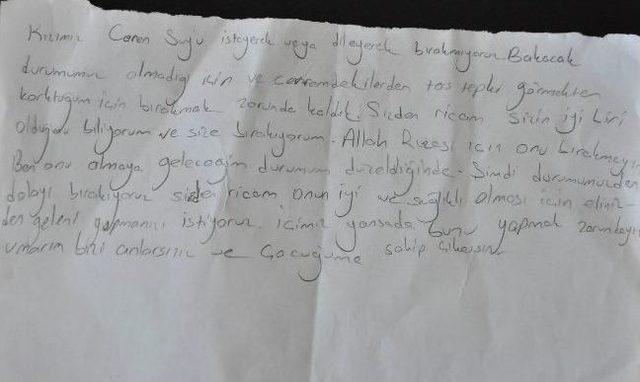 Kızımız Ceren Suyu isteyerek veya dileyerek bırakmıyoruz Bakacak
durumumuz olmadığı için ve çevremdekilerden ters tepki görmekten
korktuğum için bırakmak zorunda kaldık. Sizden ricam sizin iyi biri
olduğunu biliyorum ve size bırakıyorum. Allah Rızası için onu bırakmayın
Ben onu almaya geleceğim durumum düzeldiğinde. Şimdi durumumuzdan
dolayı bırakıyoruz sizden ricam onun iyi ve sağlıklı olması için eliniz-
den geleni yapmanızı istiyoruz. içimiz yansada bunu yapmak zorundayız
umarım bizi anlarsınız ve Çocuğuma sahip çıkarsınız